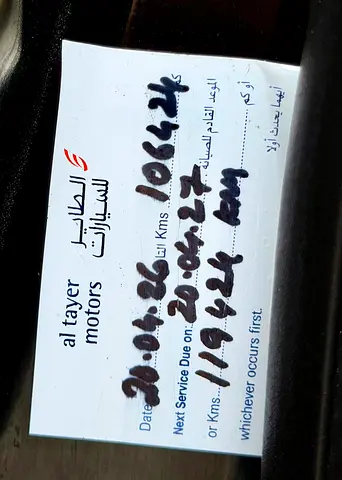 al tayer
motors
الطاير
للسيارات
Date 20.04.26 التاريخ Kms 106424 كم
Next Service Due on: 20.04.27 الموعد القادم للصيانة
or Kms. 119424 km أو كم
whichever occurs first. أيهما يحدث أولا